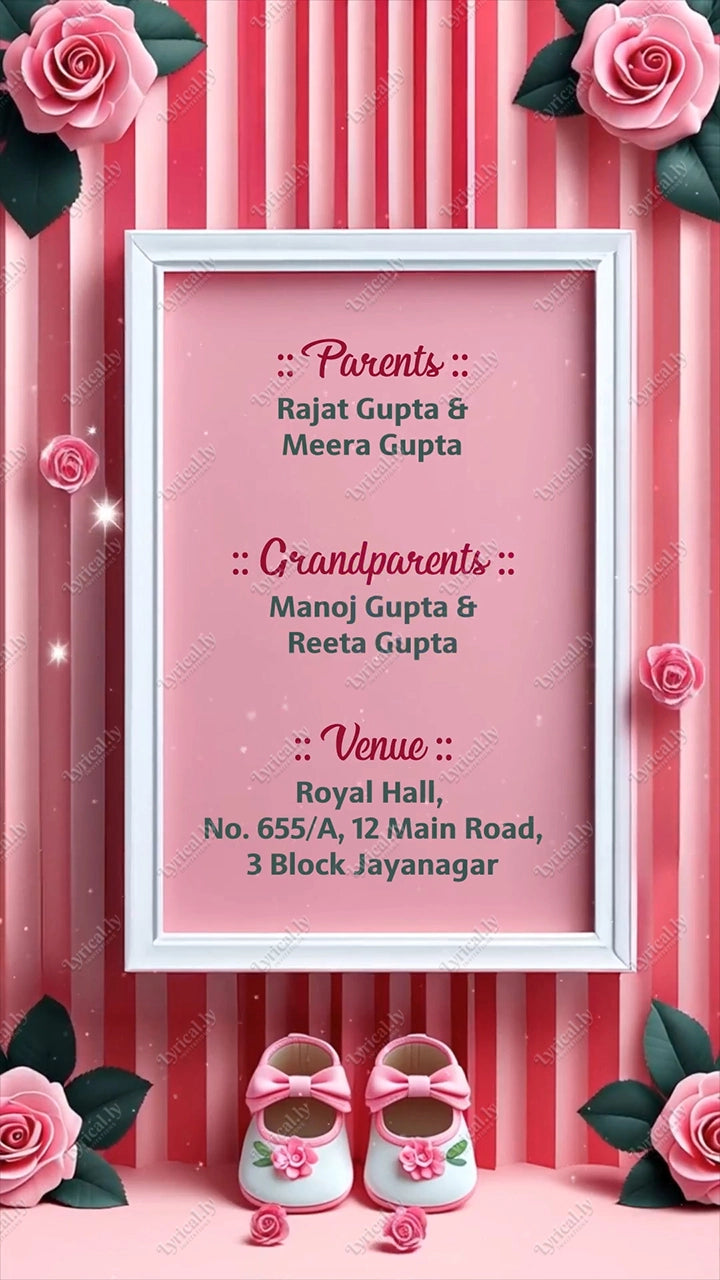 :: Parents ::
Rajat Gupta &
Meera Gupta
:: Grandparents ::
Manoj Gupta &
Reeta Gupta
:: Venue ::
Royal Hall,
No. 655/A, 12 Main Road,
3 Block Jayanagar
Lyrical.ly